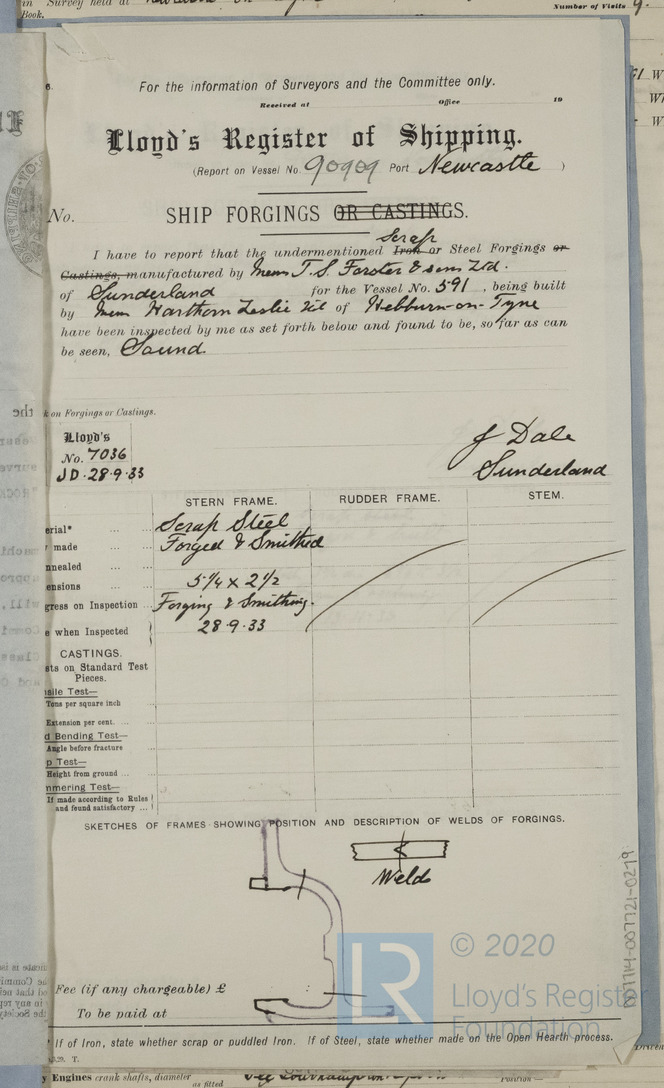 in Survey held at
Number of Visits 9.
Book.
6.
For the information of Surveyors and the Committee only.
Received at Office 19
Lloyd's Register of Shipping.
(Report on Vessel No. 90909 Port Newcastle )
No.
SHIP FORGINGS OR CASTINGS.
Scrap
I have to report that the undermentioned Iron or Steel Forgings or
Castings, manufactured by Messrs T. S. Forster & sons Ltd.
of Sunderland for the Vessel No. 591 , being built
by Messrs Hawthorn Leslie Ltd of Hebburn-on-Tyne
have been inspected by me as set forth below and found to be, so far as can
be seen, Sound.
k on Forgings or Castings.
Lloyd's
No. 7036
JD. 28.9.33
J Dale
Sunderland
STERN FRAME. RUDDER FRAME. STEM.
erial* ... ... Scrap Steel
made ... ... Forged & Smithed
nnealed ... ...
ensions ... ... 5 1/4 x 2 1/2
gress on Inspection ... Forging & Smithing.
e when Inspected 28.9.33
CASTINGS.
sts on Standard Test
Pieces.
sile Test—
Tons per square inch
Extension per cent. ... ...
d Bending Test—
Angle before fracture ...
p Test—
Height from ground ... ...
mmering Test—
If made according to Rules
and found satisfactory ...
SKETCHES OF FRAMES SHOWING POSITION AND DESCRIPTION OF WELDS OF FORGINGS.
Weld
LR
© 2020
Lloyd's Register
Foundation
Fee (if any chargeable) £
To be paid at
If of Iron, state whether scrap or puddled Iron. If of Steel, state whether made on the Open Hearth process.
T.
y Engines crank shafts, diameter as fitted
Position—